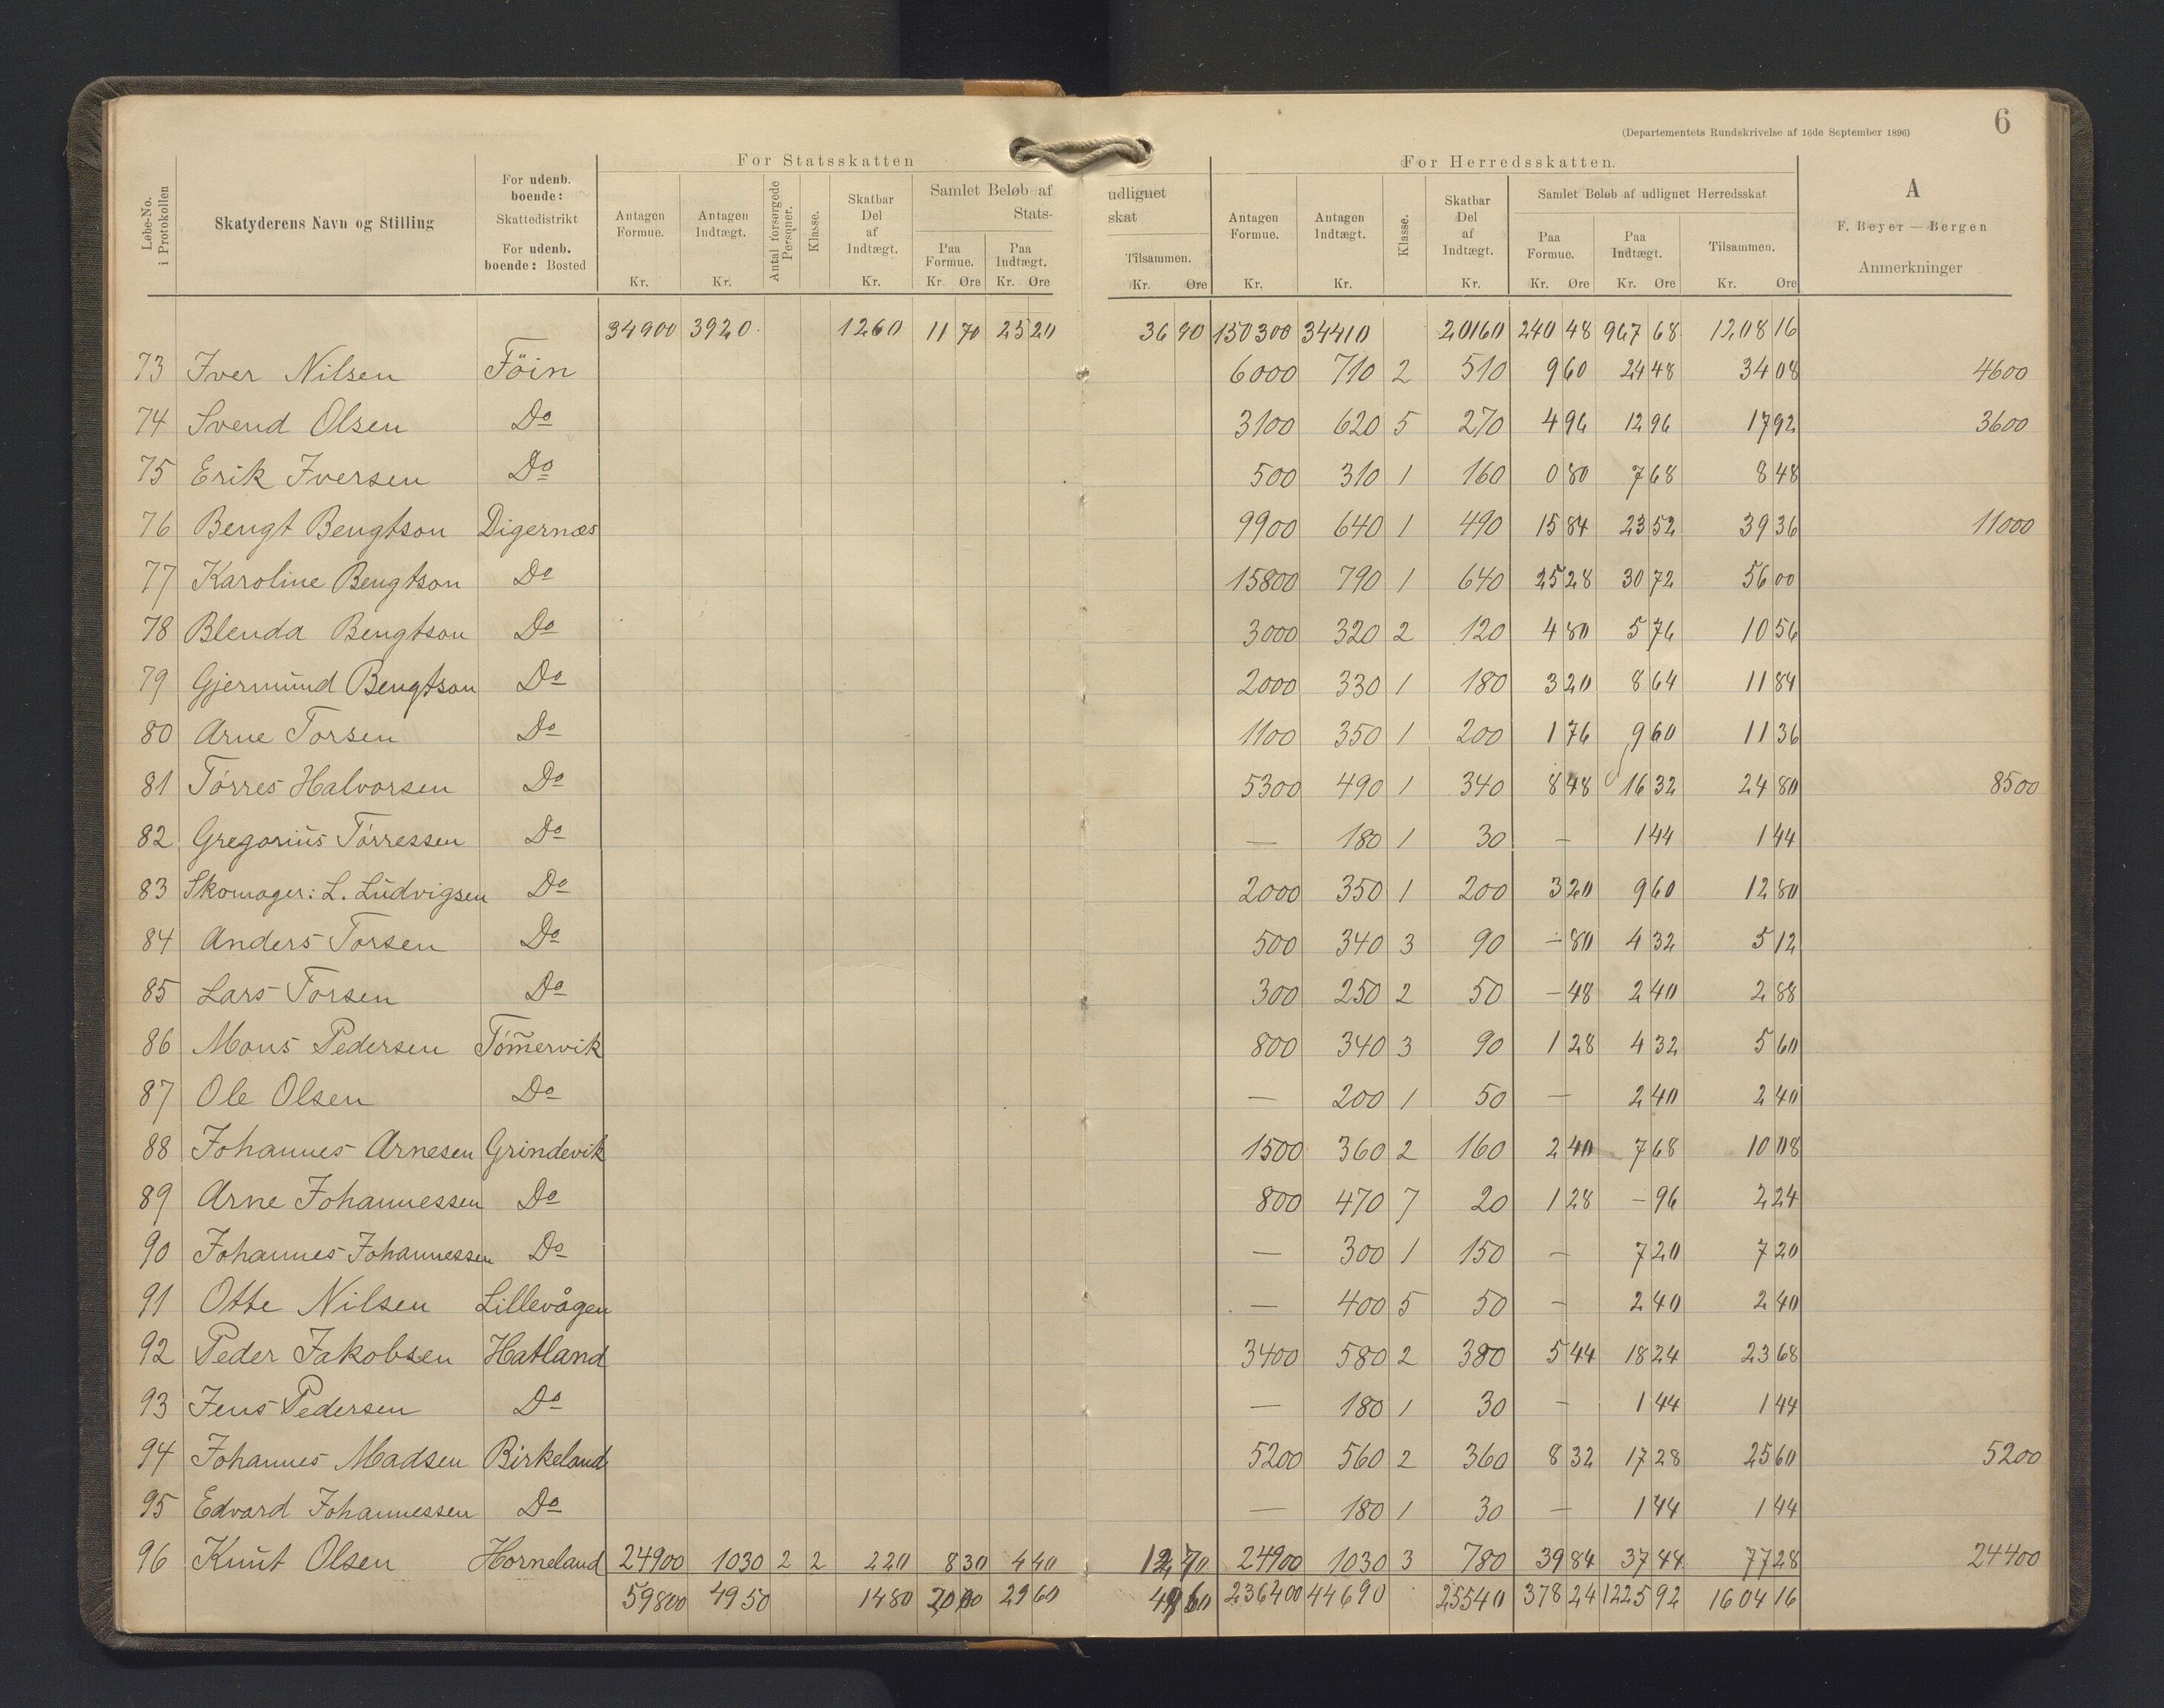 6
(Departementets Rundskrivelse af 16de September 1896)
For Statsskatten
For Herredsskatten.
Løbe-No. i Protokollen
Skatyderens Navn og Stilling
For udenb. boende: Skattedistrikt
For udenb. boende: Bosted
Antagen Formue. Kr.
Antagen Indtægt. Kr.
Antal forsørgede Personer.
Klasse.
Skatbar Del af Indtægt. Kr.
Samlet Beløb af Stats-
Paa Formue. Kr. Øre
Paa Indtægt. Kr. Øre
udlignet skat
Tilsammen. Kr. Øre
Antagen Formue. Kr.
Antagen Indtægt. Kr.
Klasse.
Skatbar Del af Indtægt. Kr.
Samlet Beløb af udlignet Herredsskat
Paa Formue. Kr. Øre
Paa Indtægt. Kr. Øre
Tilsammen. Kr. Øre
A
F. Beyer — Bergen
Anmerkninger
34900 3920 1260 11 70 25 20 36 90 150300 34410 20160 240 48 967 68 1208 16
73 Iver Nilsen Föin 6000 710 2 510 9 60 24 48 34 08 4600
74 Svend Olsen Do 3100 620 5 270 4 96 12 96 17 92 3600
75 Erik Iversen Do 500 310 1 160 0 80 7 68 8 48
76 Bengt Bengtson Digernæs 9900 640 1 490 15 84 23 52 39 36 11000
77 Karoline Bengtson Do 15800 790 1 640 25 28 30 72 56 00
78 Blenda Bengtson Do 3000 320 2 120 4 80 5 76 10 56
79 Gjermund Bengtson Do 2000 330 1 180 3 20 8 64 11 84
80 Arne Torsen Do 1100 350 1 200 1 76 9 60 11 36
81 Tórres Halvorsen Do 5300 490 1 340 8 48 16 32 24 80 8500
82 Gregorius Tórressen Do — 180 1 30 — 1 44 1 44
83 Skomager: L. Ludvigsen Do 2000 350 1 200 3 20 9 60 12 80
84 Anders Torsen Do 500 340 3 90 — 80 4 32 5 12
85 Lars Torsen Do 300 250 2 50 — 48 2 40 2 88
86 Mons Pedersen Tóm̃ervik 800 340 3 90 1 28 4 32 5 60
87 Ole Olsen Do — 200 1 50 — 2 40 2 40
88 Johannes Arnesen Grindevik 1500 360 2 160 2 40 7 68 10 08
89 Arne Johannessen Do 800 470 7 20 1 28 — 96 2 24
90 Johannes Johannessen Do — 300 1 150 — 7 20 7 20
91 Otte Nilsen Lillevågen — 400 5 50 — 2 40 2 40
92 Peder Jakobsen Hatland 3400 580 2 380 5 44 18 24 23 68
93 Jens Pedersen Do — 180 1 30 — 1 44 1 44
94 Johannes Madsen Birkeland 5200 560 2 360 8 32 17 28 25 60 5200
95 Edvard Johannessen Do — 180 1 30 — 1 44 1 44
96 Knut Olsen Horneland 24900 1030 2 2 220 8 30 4 40 12 70 24900 1030 3 780 39 84 37 44 77 28 24400
59800 4950 1480 20 00 29 60 49 60 236400 44690 25540 378 24 1225 92 1604 16